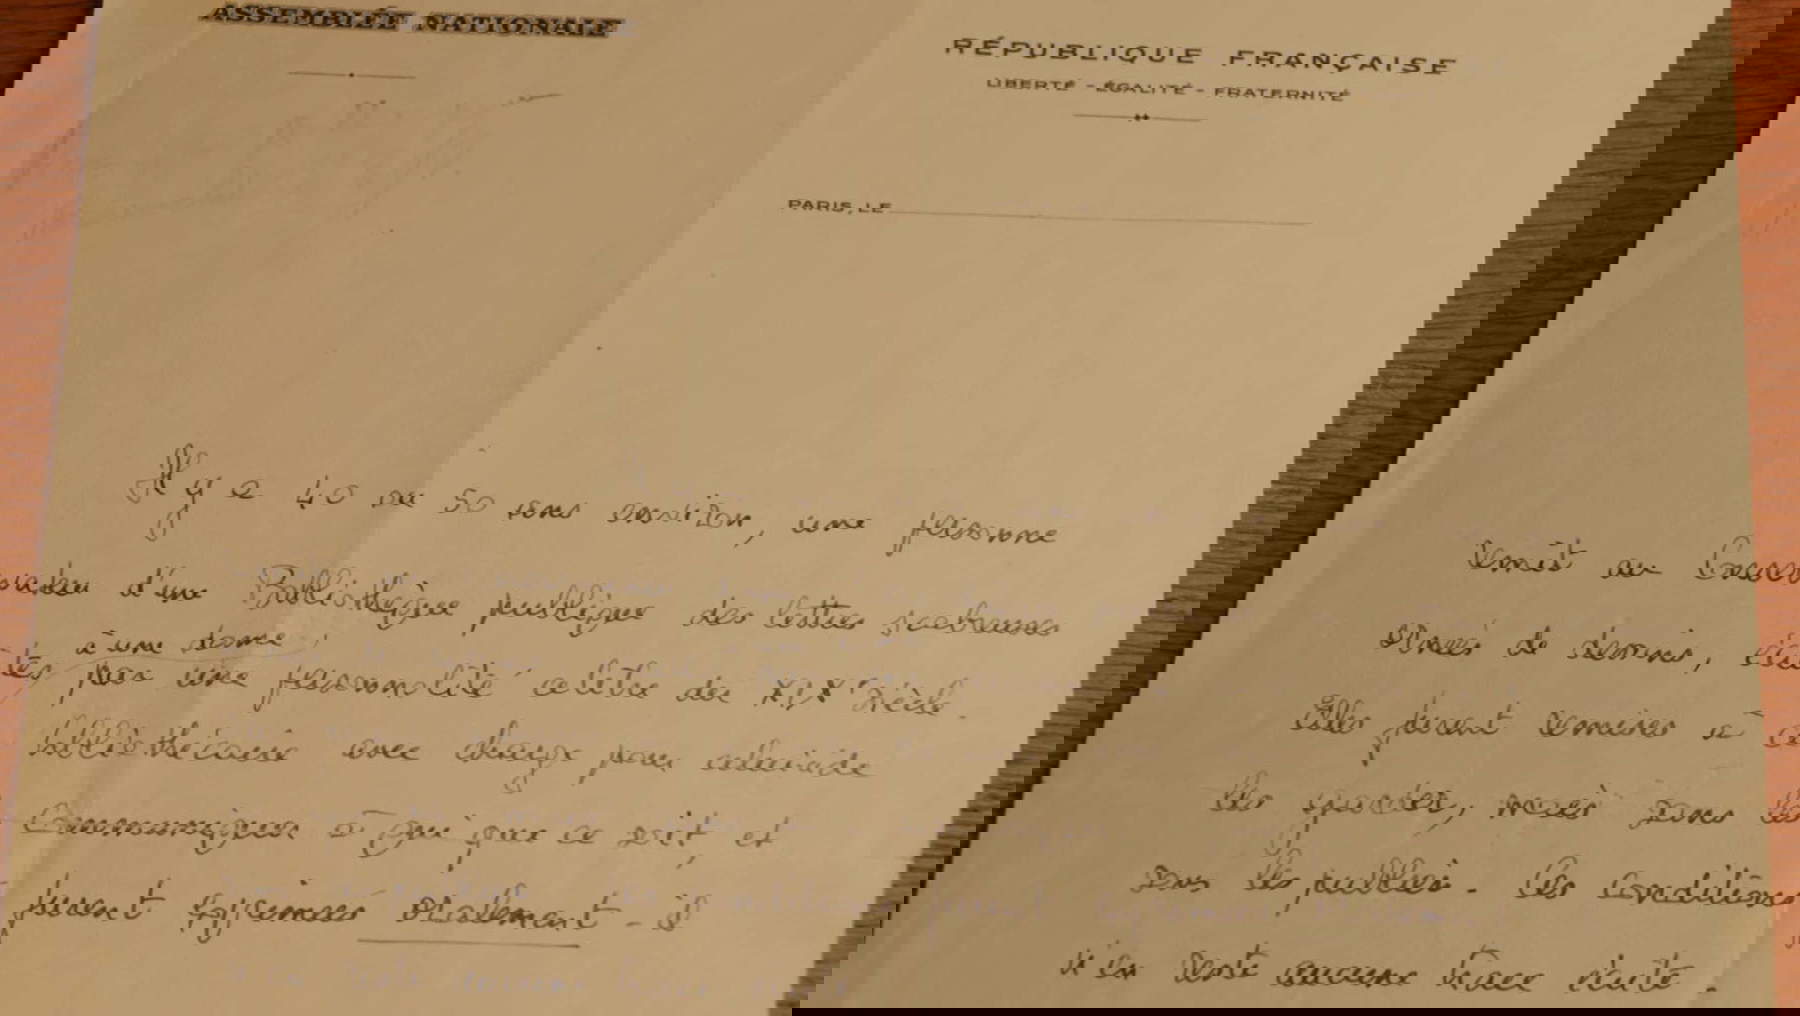 ASSEMBLÉE NATIONALE
RÉPUBLIQUE FRANÇAISE
LIBERTÉ - ÉGALITÉ - FRATERNITÉ
PARIS, LE
Il y a 40 ou 50 ans environ, une personne remit au Conser
vateur d'une Bibliothèque publique des lettres scabreuses ornées de dessins, écri
à une dame,
tes par une personnalité célèbre du XIXe siècle. Elles furent remises à ce
bibliothécaire avec charge pour celui-ci de les garder, mais sans les
communiquer à qui que ce soit, et sans les publier. Ces conditions
furent exprimées oralement - il n'en reste aucune trace écrite.